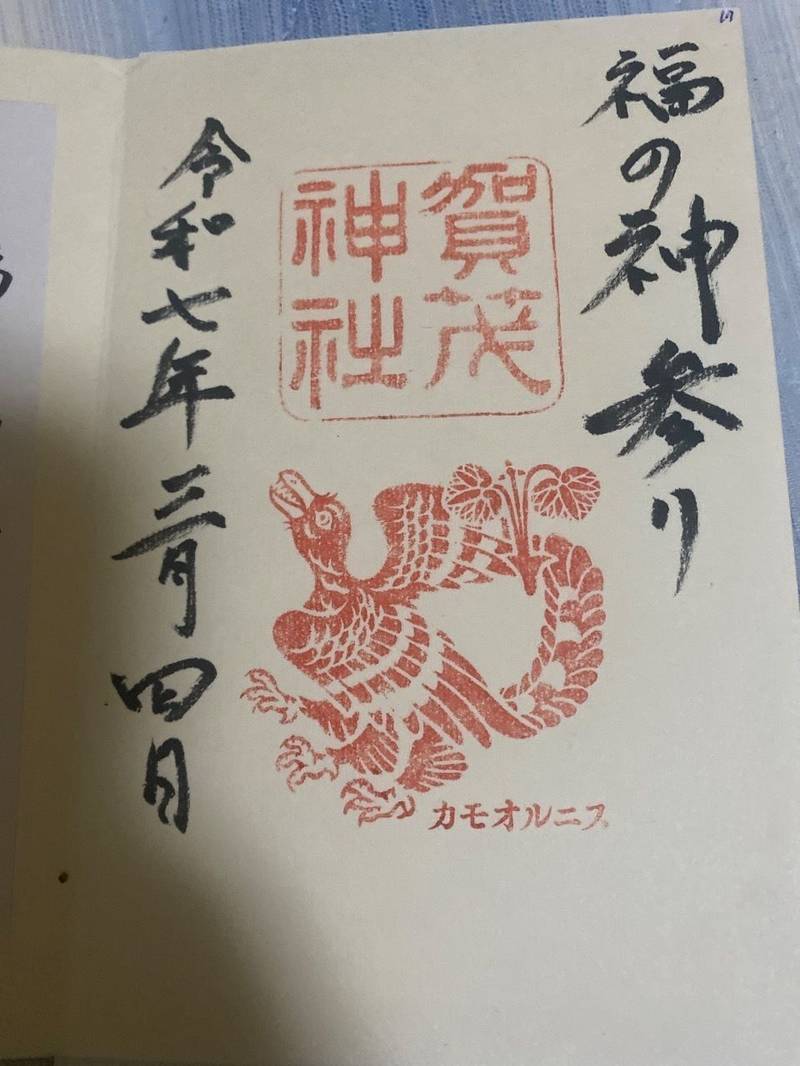 福の神参り
賀茂
神社
カモオルニス
令和七年三月四日